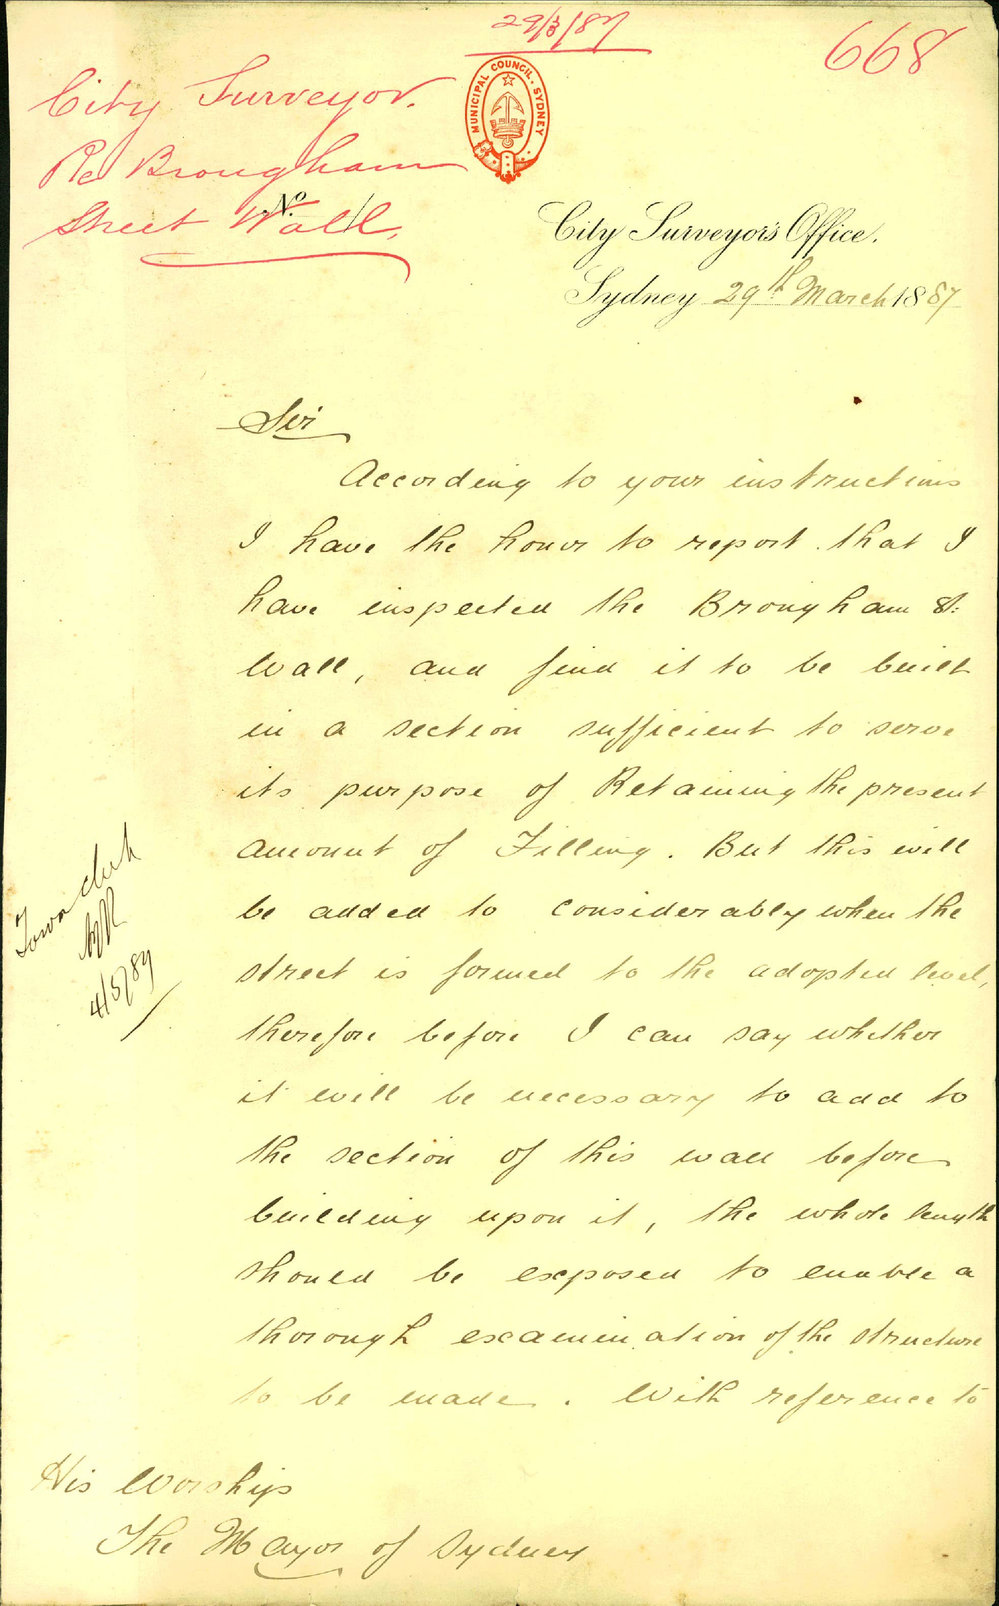 29/3/87
668
City Surveyor.
Re Brougham
Street Wall,
MUNICIPAL COUNCIL. SYDNEY
No.
City Surveyor's Office.
Sydney 29th March 1887
Sir
According to your instructions
I have the honor to report that I
have inspected the Brougham St.
Wall, and find it to be built
in a section sufficient to serve
its purpose of Retaining the present
amount of Filling. But this will
be added to considerably when the
street is formed to the adopted level,
therefore before I can say whether
it will be necessary to add to
the section of this wall before
building upon it, the whole length
should be exposed to enable a
thorough examination of the structure
to be made. With reference to
Town Clerk
4/5/87
His Worship
The Mayor of Sydney